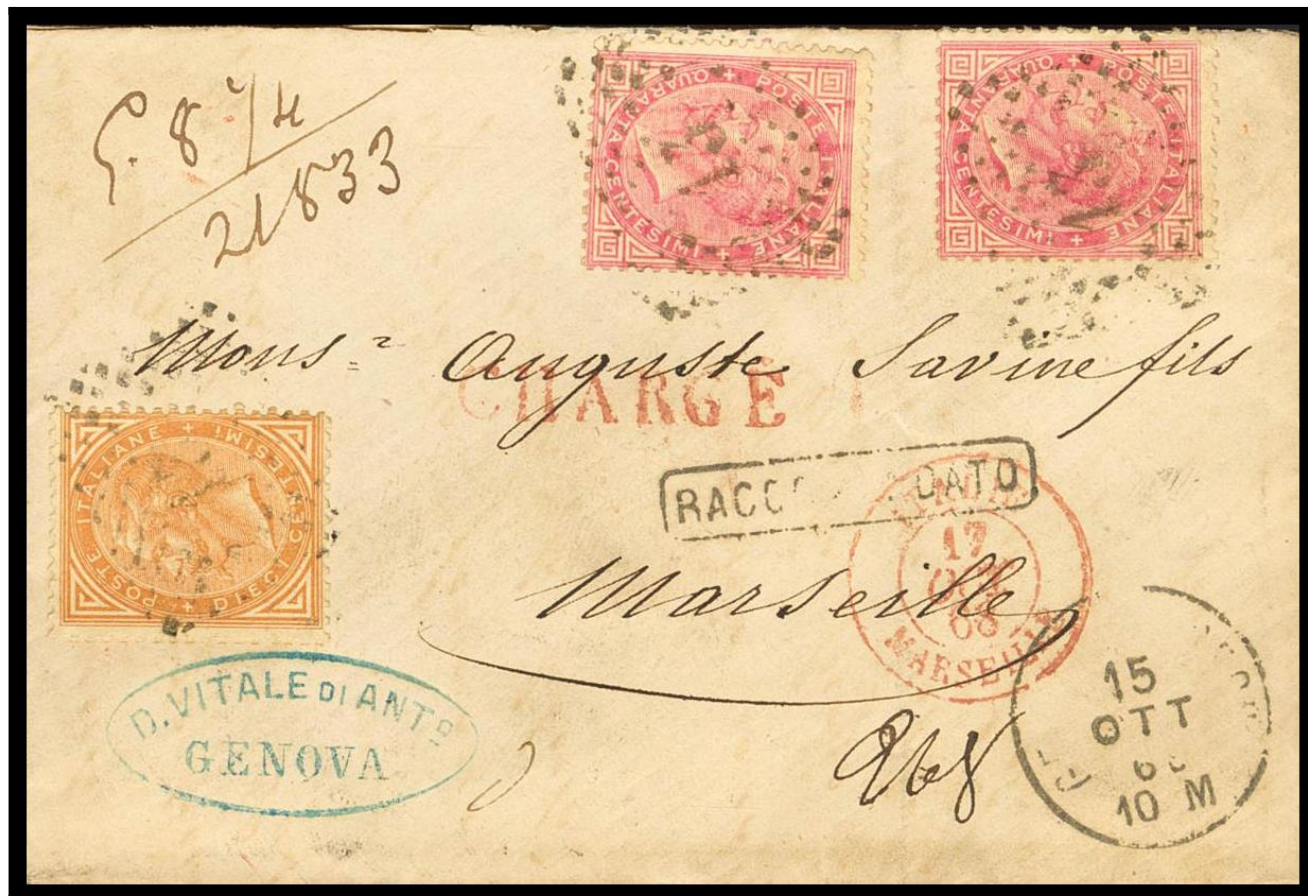 G. 8 1/4
21833
POSTE ITALIANE + QUARANTA CENTESIMI +
13
POSTE ITALIANE + QUARANTA CENTESIMI +
13
Monsr Auguste Savine fils
CHARGÉ
POSTE ITALIANE + DIECI CENTESIMI +
RACCO DATO
17
OCT
68
MARSEILLE
Marseille
D. VITALE DI ANTO
GENOVA
968
15
OTT
10 M